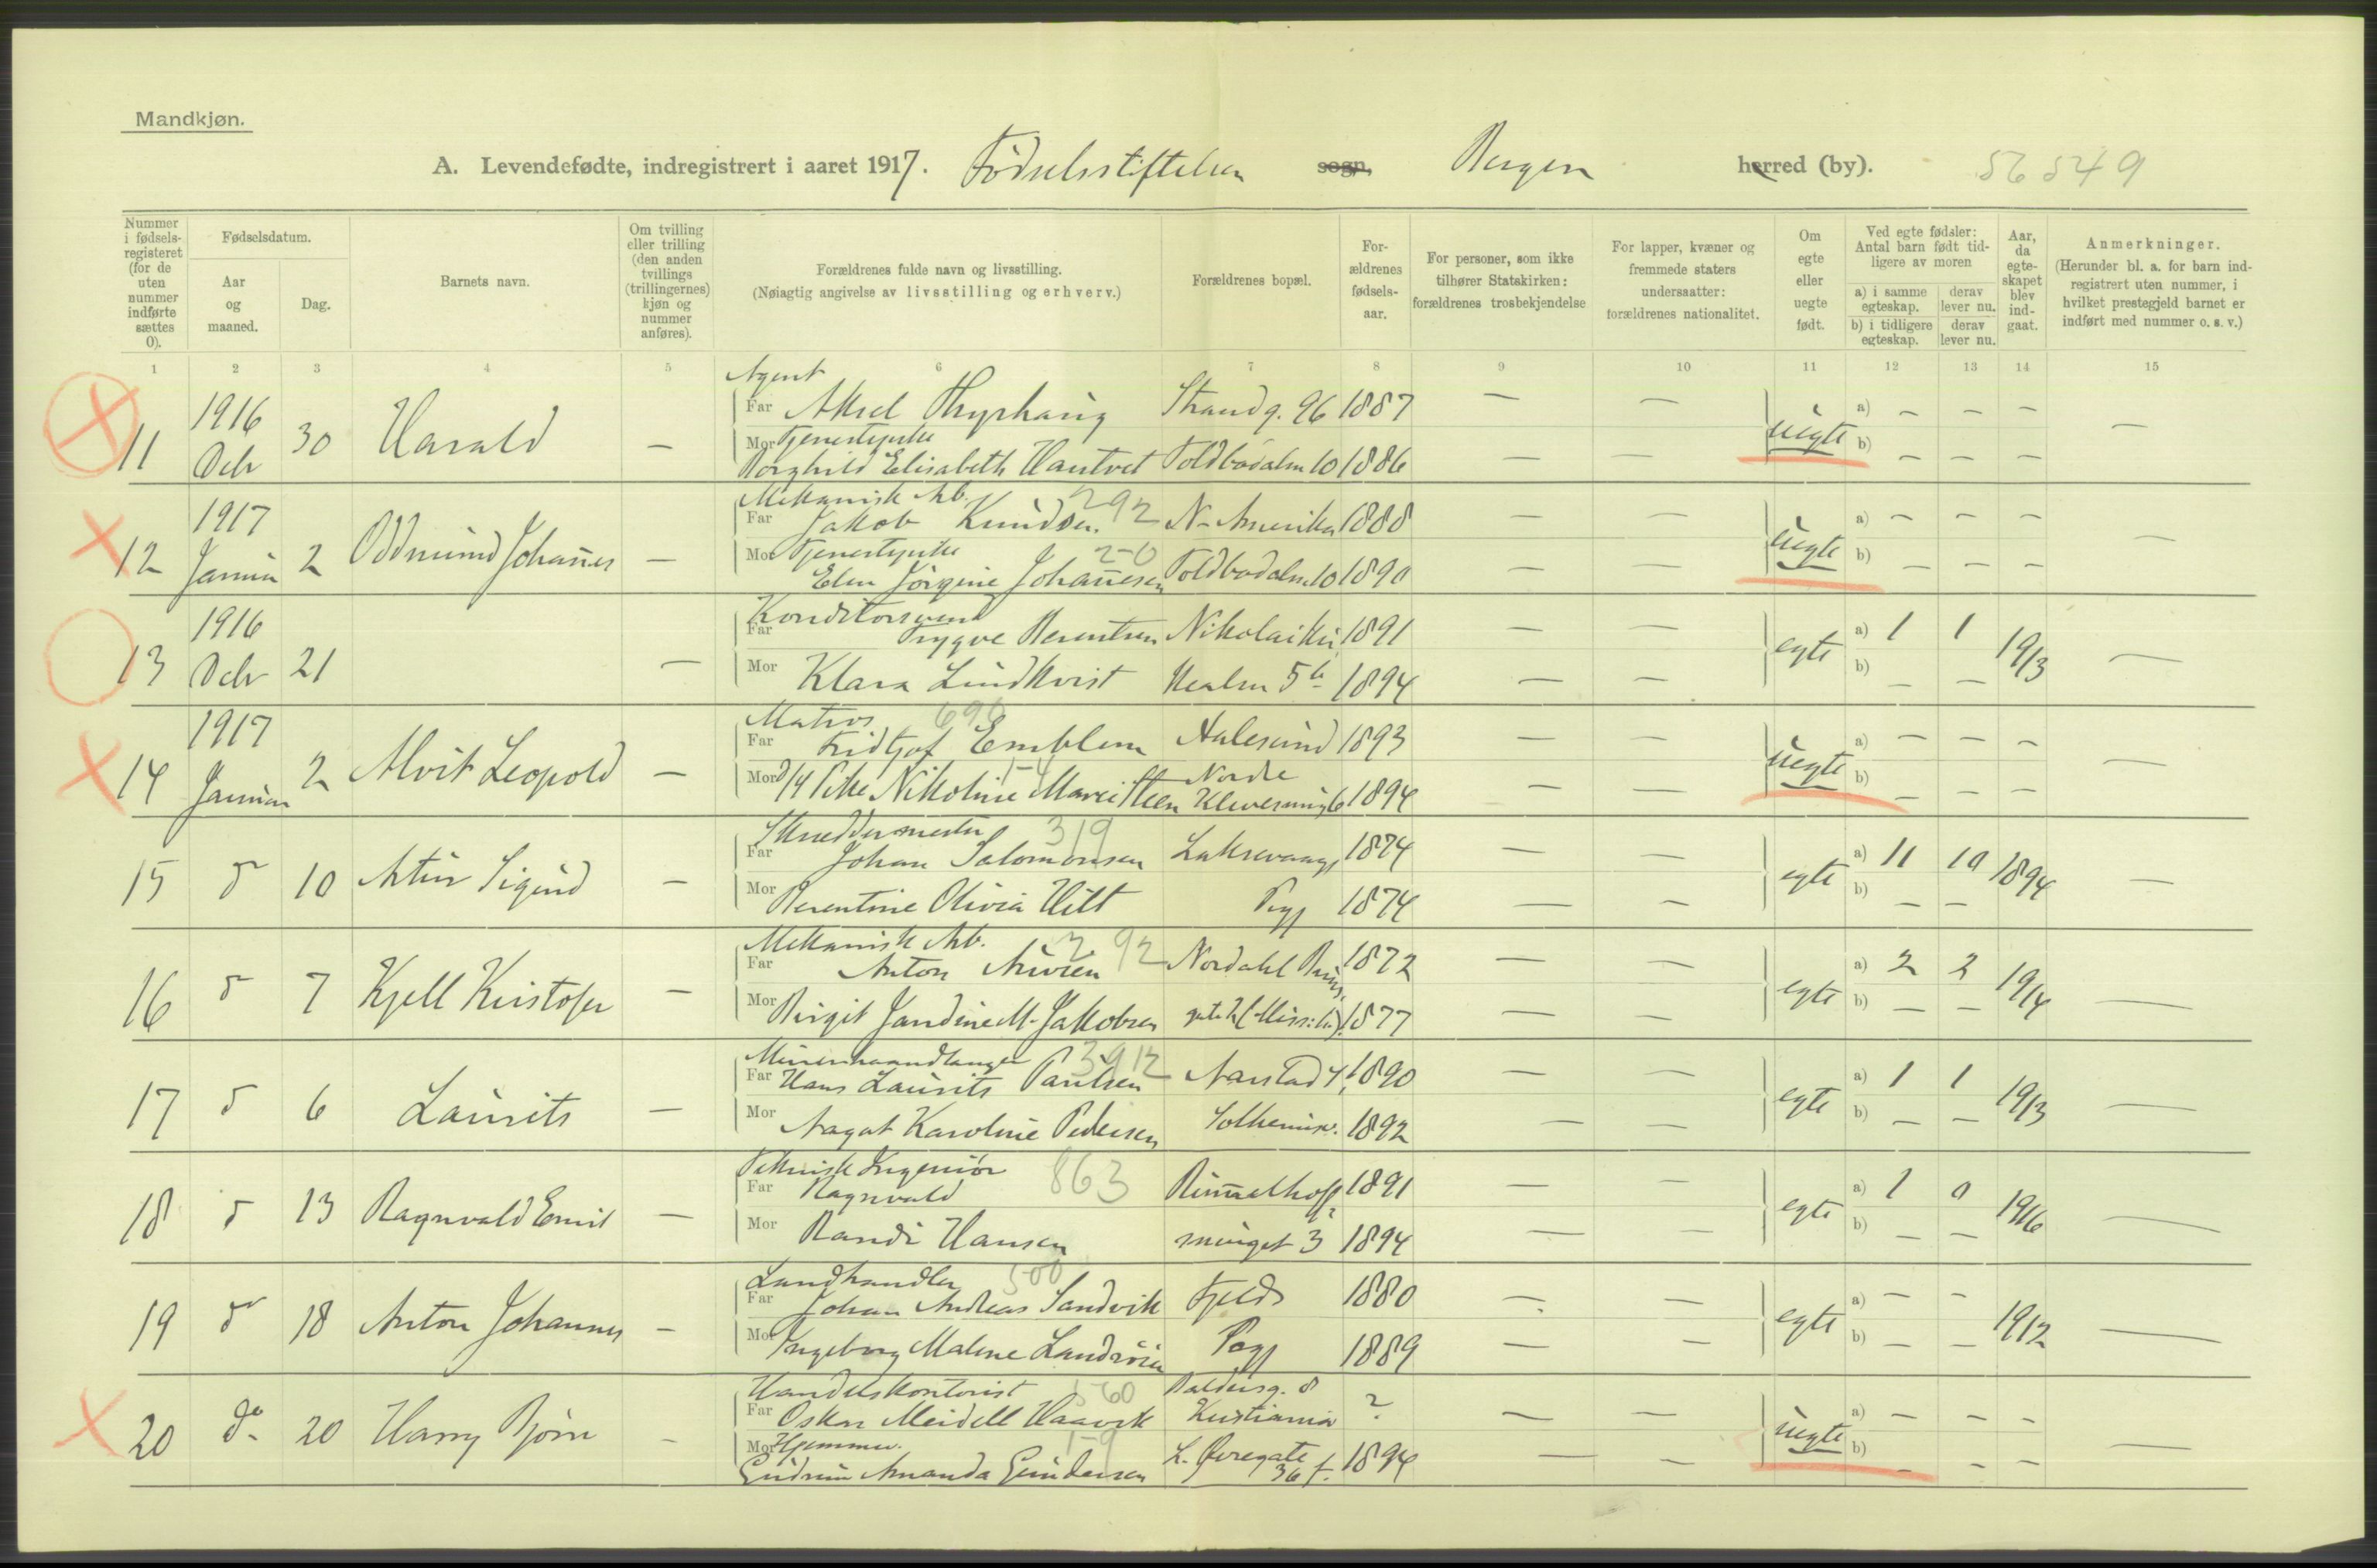 Mandkjøn.
A. Levendefødte, indregistrert i aaret 1917. Fødselsstiftelsen sogn, Bergen herred (by). 56549
Nummer i fødsels-registeret (for de uten nummer indførte sættes 0).
Fødselsdatum.
Aar og maaned.
Dag.
Barnets navn.
Om tvilling eller trilling (den anden tvillings (trillingernes) kjøn og nummer anføres).
Forældrenes fulde navn og livsstilling.
(Nøiagtig angivelse av livsstilling og erhverv.)
Forældrenes bopæl.
For-ældrenes fødsels-aar.
For personer, som ikke tilhører Statskirken: forældrenes trosbekjendelse
For lapper, kvæner og fremmede staters undersaatter: forældrenes nationalitet.
Om egte eller uegte født.
Ved egte fødsler: Antal barn født tid-ligere av moren
a) i samme egteskap. derav lever nu.
b) i tidligere egteskap. derav lever nu.
Aar, da egte-skapet blev ind-gaat.
Anmerkninger.
(Herunder bl. a. for barn ind-registrert uten nummer, i hvilket prestegjeld barnet er indført med nummer o. s. v.)
1 2 3 4 5 6 7 8 9 10 11 12 13 14 15
Agent
11 1916 Decbr 30 Harald — Far Aksel Strandg. 96 1887 — — uegte a) — — — —
Mor Tjenestepike
Borghild Elisabeth Hantvet Toldbodalm 10 1886 — — b) — — —
Mekanisk Arb. 292
12 1917 Januar 2 Oddmund Johannes — Far Jakob Knudsen N-Amerika 1888 — — uegte a) — — — —
Mor Tjenestepike 2-0
Elen Jørgine Johannesen Toldbodalm 10 1890 — — b) — — —
Konditorsvend
13 1916 Decbr 21 — Far Trygve Berentsen Nikolaikir 1891 — — egte a) 1 1 1913 —
Mor Klara Lindkvist alm 5 b 1894 — — b) — —
Matros 690
14 1917 Januar 2 Alvit Leopold — Far Fridtjof Emblem Aalesund 1893 — — uegte a) — — — —
Mor Pike Nikoline Marei Steen Nordre Klevesmug 6 1894 — — b) — — —
Skreddermester 319
15 d 10 Artur Sigurd — Far Johan Salomonsen Laksevaag 1874 — — egte a) 11 10 1894 —
Mor Berentine Olivia Hilt Pgj 1874 — — b) — —
Mekanisk Arb. 292
16 d 7 Kjell Kristofer — Far Anton Nordahl Bruns 1872 — — egte a) 2 2 1914 —
Mor Birgit Jandine M. Jakobsen gate 1877 — — b) — —
Murerhaandlanger 3912
17 d 6 Laurits — Far Hans Laurits Paulsen 1890 — — egte a) 1 1 1913 —
Mor Aagot Karoline Pedersen Solheimsv. 1892 — — b) — —
Teknisk Ingeniør 863
18 d 13 Ragnvald Emil — Far Ragnvald 1891 — — egte a) 1 0 1916 —
Mor Randi Hansen smuget 3 1894 — — b) — —
Landhandler 500
19 d 18 Anton Johannes — Far Johan Andreas Sandvik Fjelds 1880 — — egte a) — — 1912 —
Mor Ingeborg Malene Pgj 1889 — — b) — —
Handelskontorist 560 Baldersg. 8
20 do 20 Harry Bjørn — Far Oskar Meidell Haavik Kristiania ? — — uegte a) — — — —
Mor Hjemmev. 1-9
Gudrun Amanda Gundersen L. Øvregate 36 f. 1894 — — b) — — —